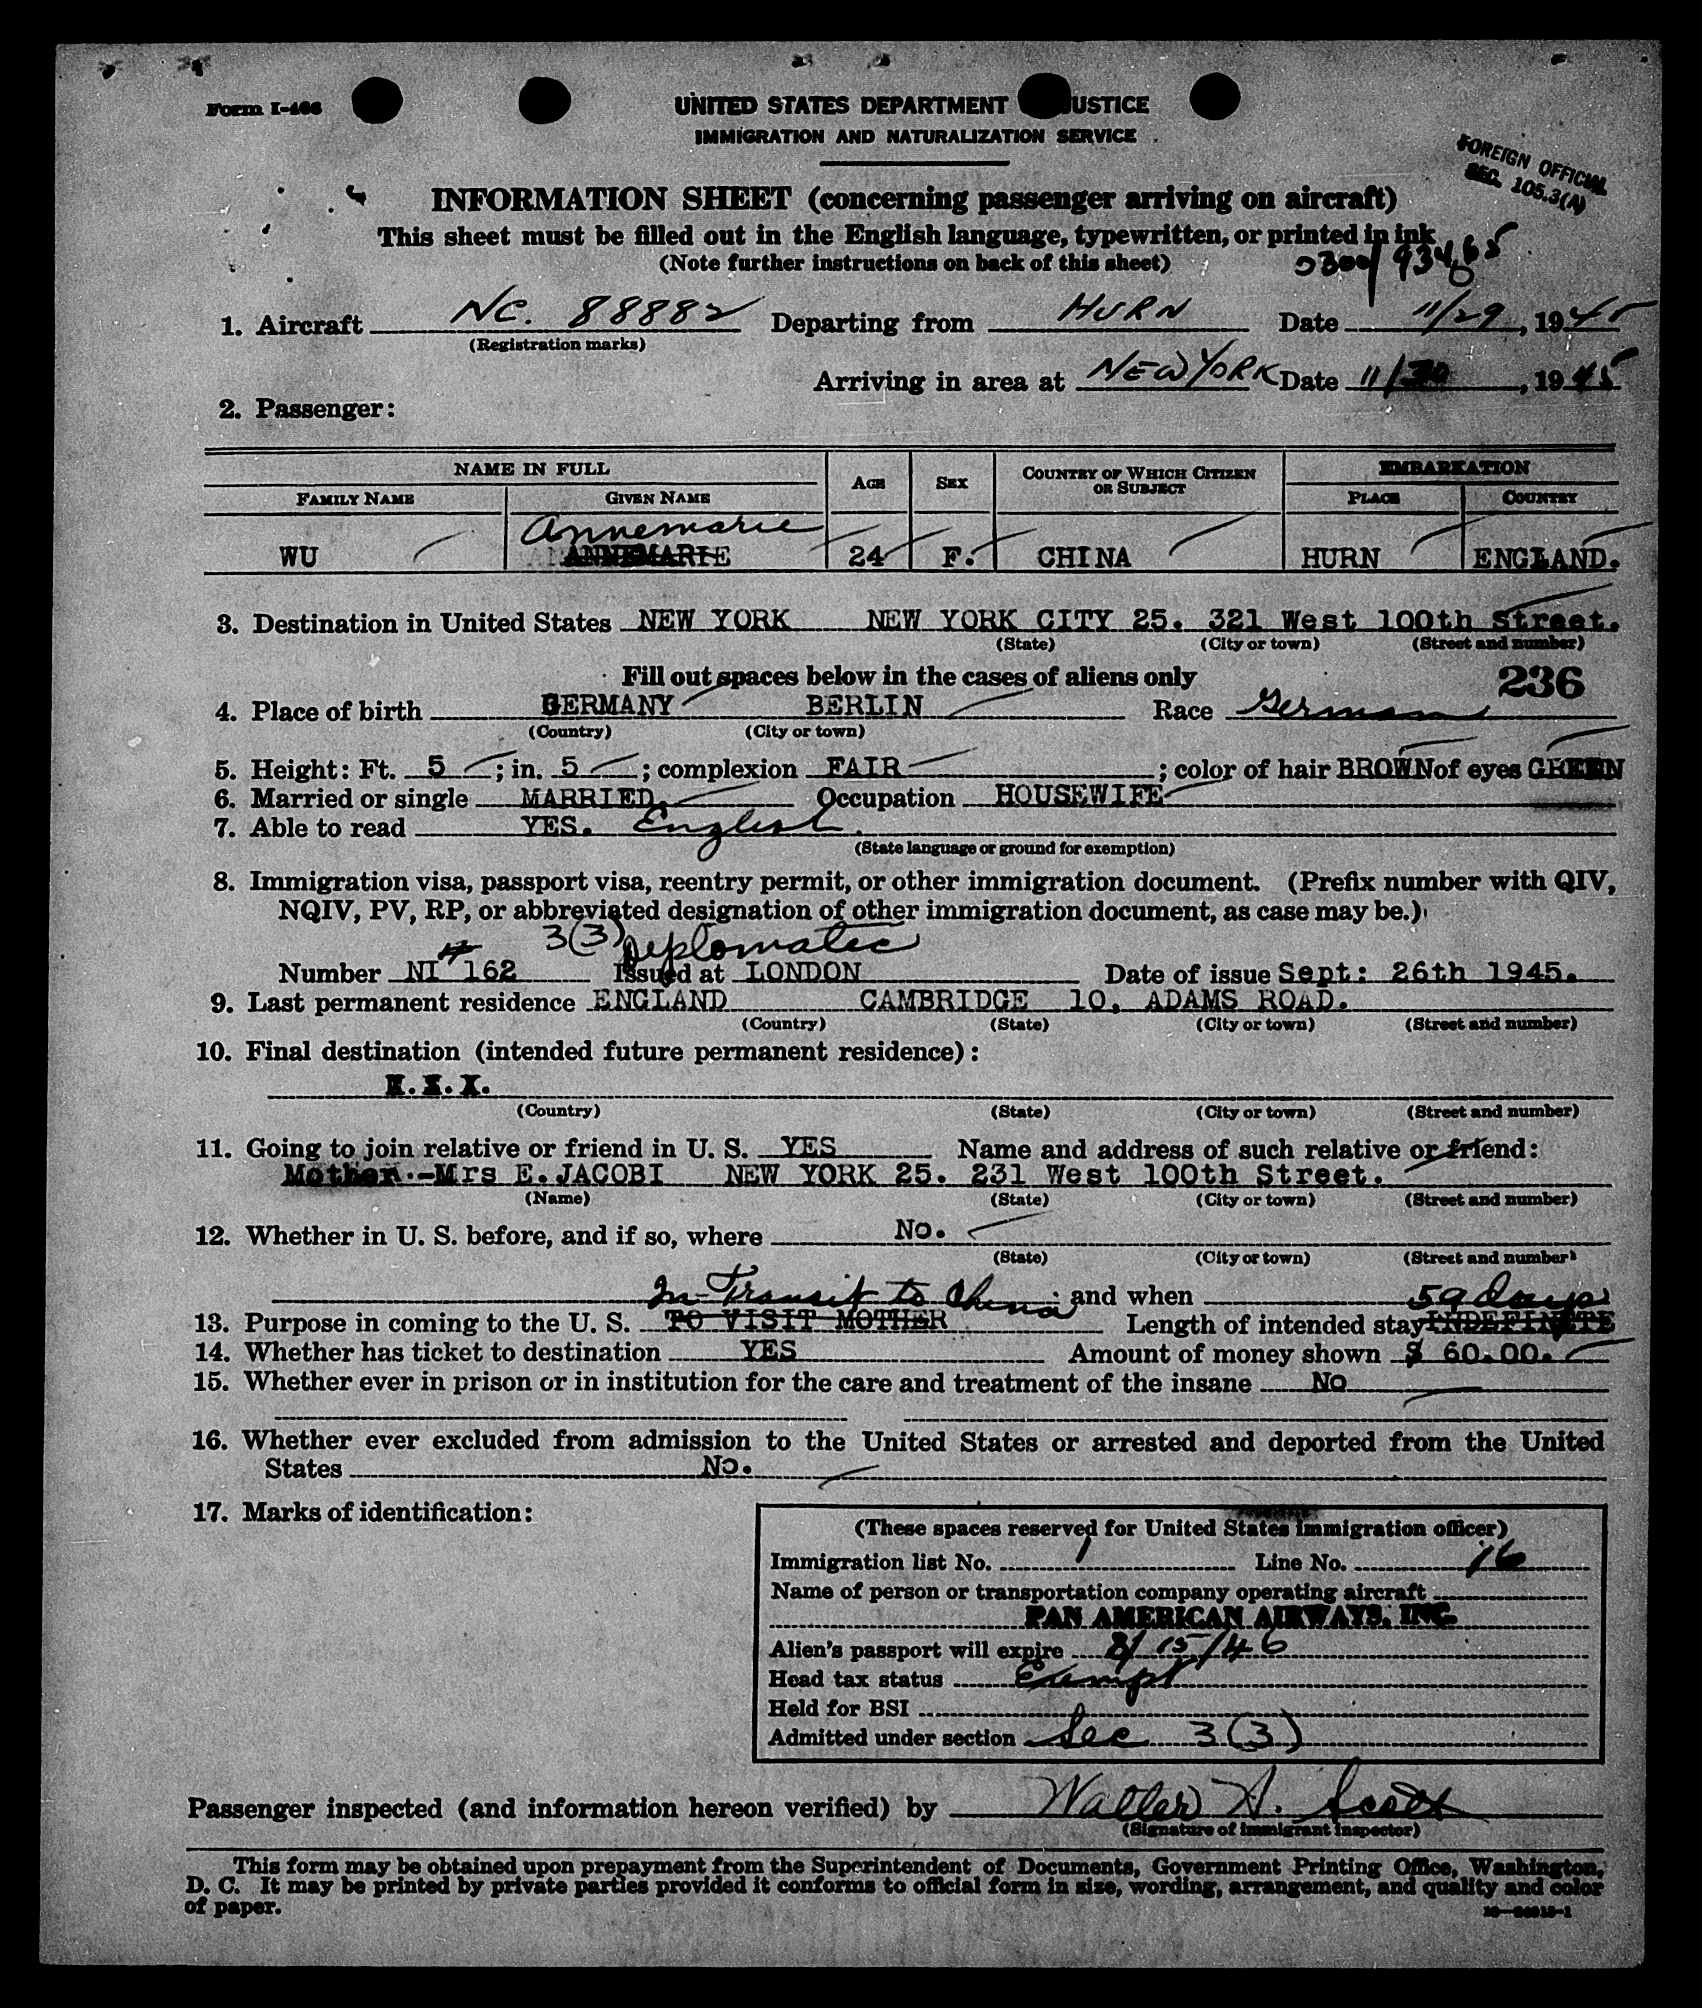 Form I-466
UNITED STATES DEPARTMENT USTICE
IMMIGRATION AND NATURALIZATION SERVICE
FOREIGN OFFICIAL
SEC. 105.3(A)
INFORMATION SHEET (concerning passenger arriving on aircraft)
This sheet must be filled out in the English language, typewritten, or printed in ink
(Note further instructions on back of this sheet)
0300/93465
1. Aircraft NC. 88882 Departing from HURN Date 11/29, 1945
(Registration marks)
Arriving in area at NEW YORK Date 11/30, 1945
2. Passenger:
NAME IN FULL AGE SEX COUNTRY OF WHICH CITIZEN OR SUBJECT EMBARKATION
FAMILY NAME GIVEN NAME PLACE COUNTRY
Annemarie
WU ANNEMARIE 24 F. CHINA HURN ENGLAND.
3. Destination in United States NEW YORK NEW YORK CITY 25. 321 West 100th Street.
(State) (City or town) (Street and number)
Fill out spaces below in the cases of aliens only 236
4. Place of birth GERMANY BERLIN Race German
(Country) (City or town)
5. Height: Ft. 5; in. 5; complexion FAIR; color of hair BROWN of eyes GREEN
6. Married or single MARRIED. Occupation HOUSEWIFE
7. Able to read YES. English.
(State language or ground for exemption)
8. Immigration visa, passport visa, reentry permit, or other immigration document. (Prefix number with QIV,
NQIV, PV, RP, or abbreviated designation of other immigration document, as case may be.)
3(3) Diplomatic
Number NI # 162 Issued at LONDON Date of issue Sept: 26th 1945.
9. Last permanent residence ENGLAND CAMBRIDGE 10, ADAMS ROAD.
(Country) (State) (City or town) (Street and number)
10. Final destination (intended future permanent residence):
(Country) (State) (City or town) (Street and number)
11. Going to join relative or friend in U. S. YES Name and address of such relative or friend:
Mother.-Mrs E. JACOBI NEW YORK 25. 231 West 100th Street.
(Name) (State) (City or town) (Street and number)
12. Whether in U. S. before, and if so, where No.
(State) (City or town) (Street and number)
In Transit to China; and when 59 days
13. Purpose in coming to the U. S. TO VISIT MOTHER Length of intended stay INDEFINITE
14. Whether has ticket to destination YES Amount of money shown $ 60.00.
15. Whether ever in prison or in institution for the care and treatment of the insane No
16. Whether ever excluded from admission to the United States or arrested and deported from the United
States No.
17. Marks of identification:
(These spaces reserved for United States immigration officer)
Immigration list No. 1 Line No. 16
Name of person or transportation company operating aircraft
PAN AMERICAN AIRWAYS, INC.
Alien's passport will expire 8/15/46
Head tax status Exempt
Held for BSI
Admitted under section Sec 3(3)
Passenger inspected (and information hereon verified) by Walter A. Scott
(Signature of immigrant inspector)
This form may be obtained upon prepayment from the Superintendent of Documents, Government Printing Office, Washington,
D. C. It may be printed by private parties provided it conforms to official form in size, wording, arrangement, and quality and color
of paper.